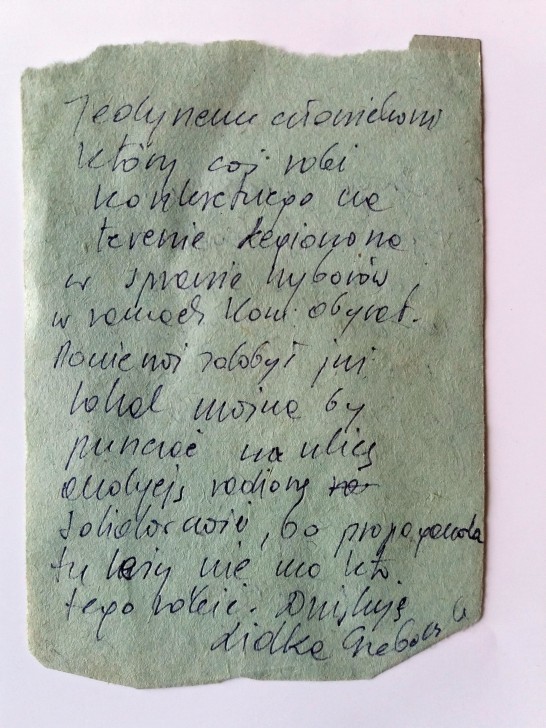 Jedynemu człowiekowi
który coś robi
konkretnego na
terenie Legionowa
w sprawie wyborów
w ramach Kom. obywat.
Ponieważ zdobył już
lokal można by
puszczać na ulicę
audycję radiową
Solidarności, bo propaganda
tu leży nie ma kto
tego robić. Dziękuję
Lidka